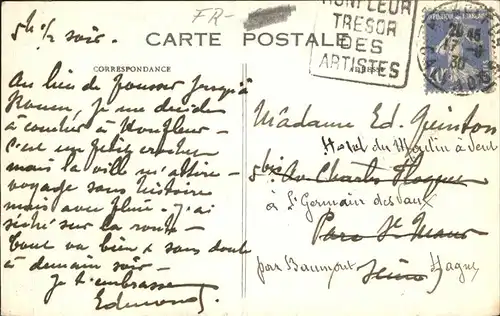 FR-
5h 1/2 soir.
CARTE POSTALE
HONFLEUR
TRESOR
DES
ARTISTES
20 45
17 - 9
30
CORRESPONDANCE
ADRESSE
Au lieu de pousser jusqu'à
Rouen, je me décide
à coucher à Honfleur -
c'est un petit crochet
mais la ville m'attire -
voyage sans histoire
mais avec pluie. J'ai
séché sur la route -
tout va bien & sans doute
à demain soir -
Je t'embrasse
Edmond
Madame Ed. Quinton
Hotel du Moulin à Vent
5 bis Av Charles Floquet
à St Germain des Vaux
Parc St Maur
par Beaumont Seine Hague